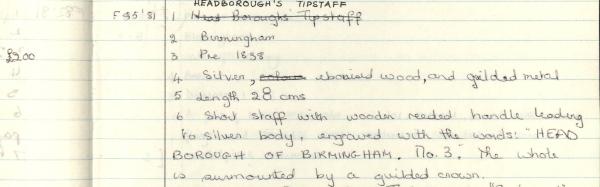 HEADBOROUGH'S TIPSTAFF
F 95'81 1 Head Borough's Tipstaff
2 Birmingham
£9.00 3 Pre 1838
4 Silver, ebonised wood, and guilded metal
5 Length 28 cms
6 Short staff with wooden reeded handle leading
to silver body, engraved with the words: "HEAD
BOROUGH OF BIRMINGHAM. No. 3". The whole
is surmounted by a guilded crown.